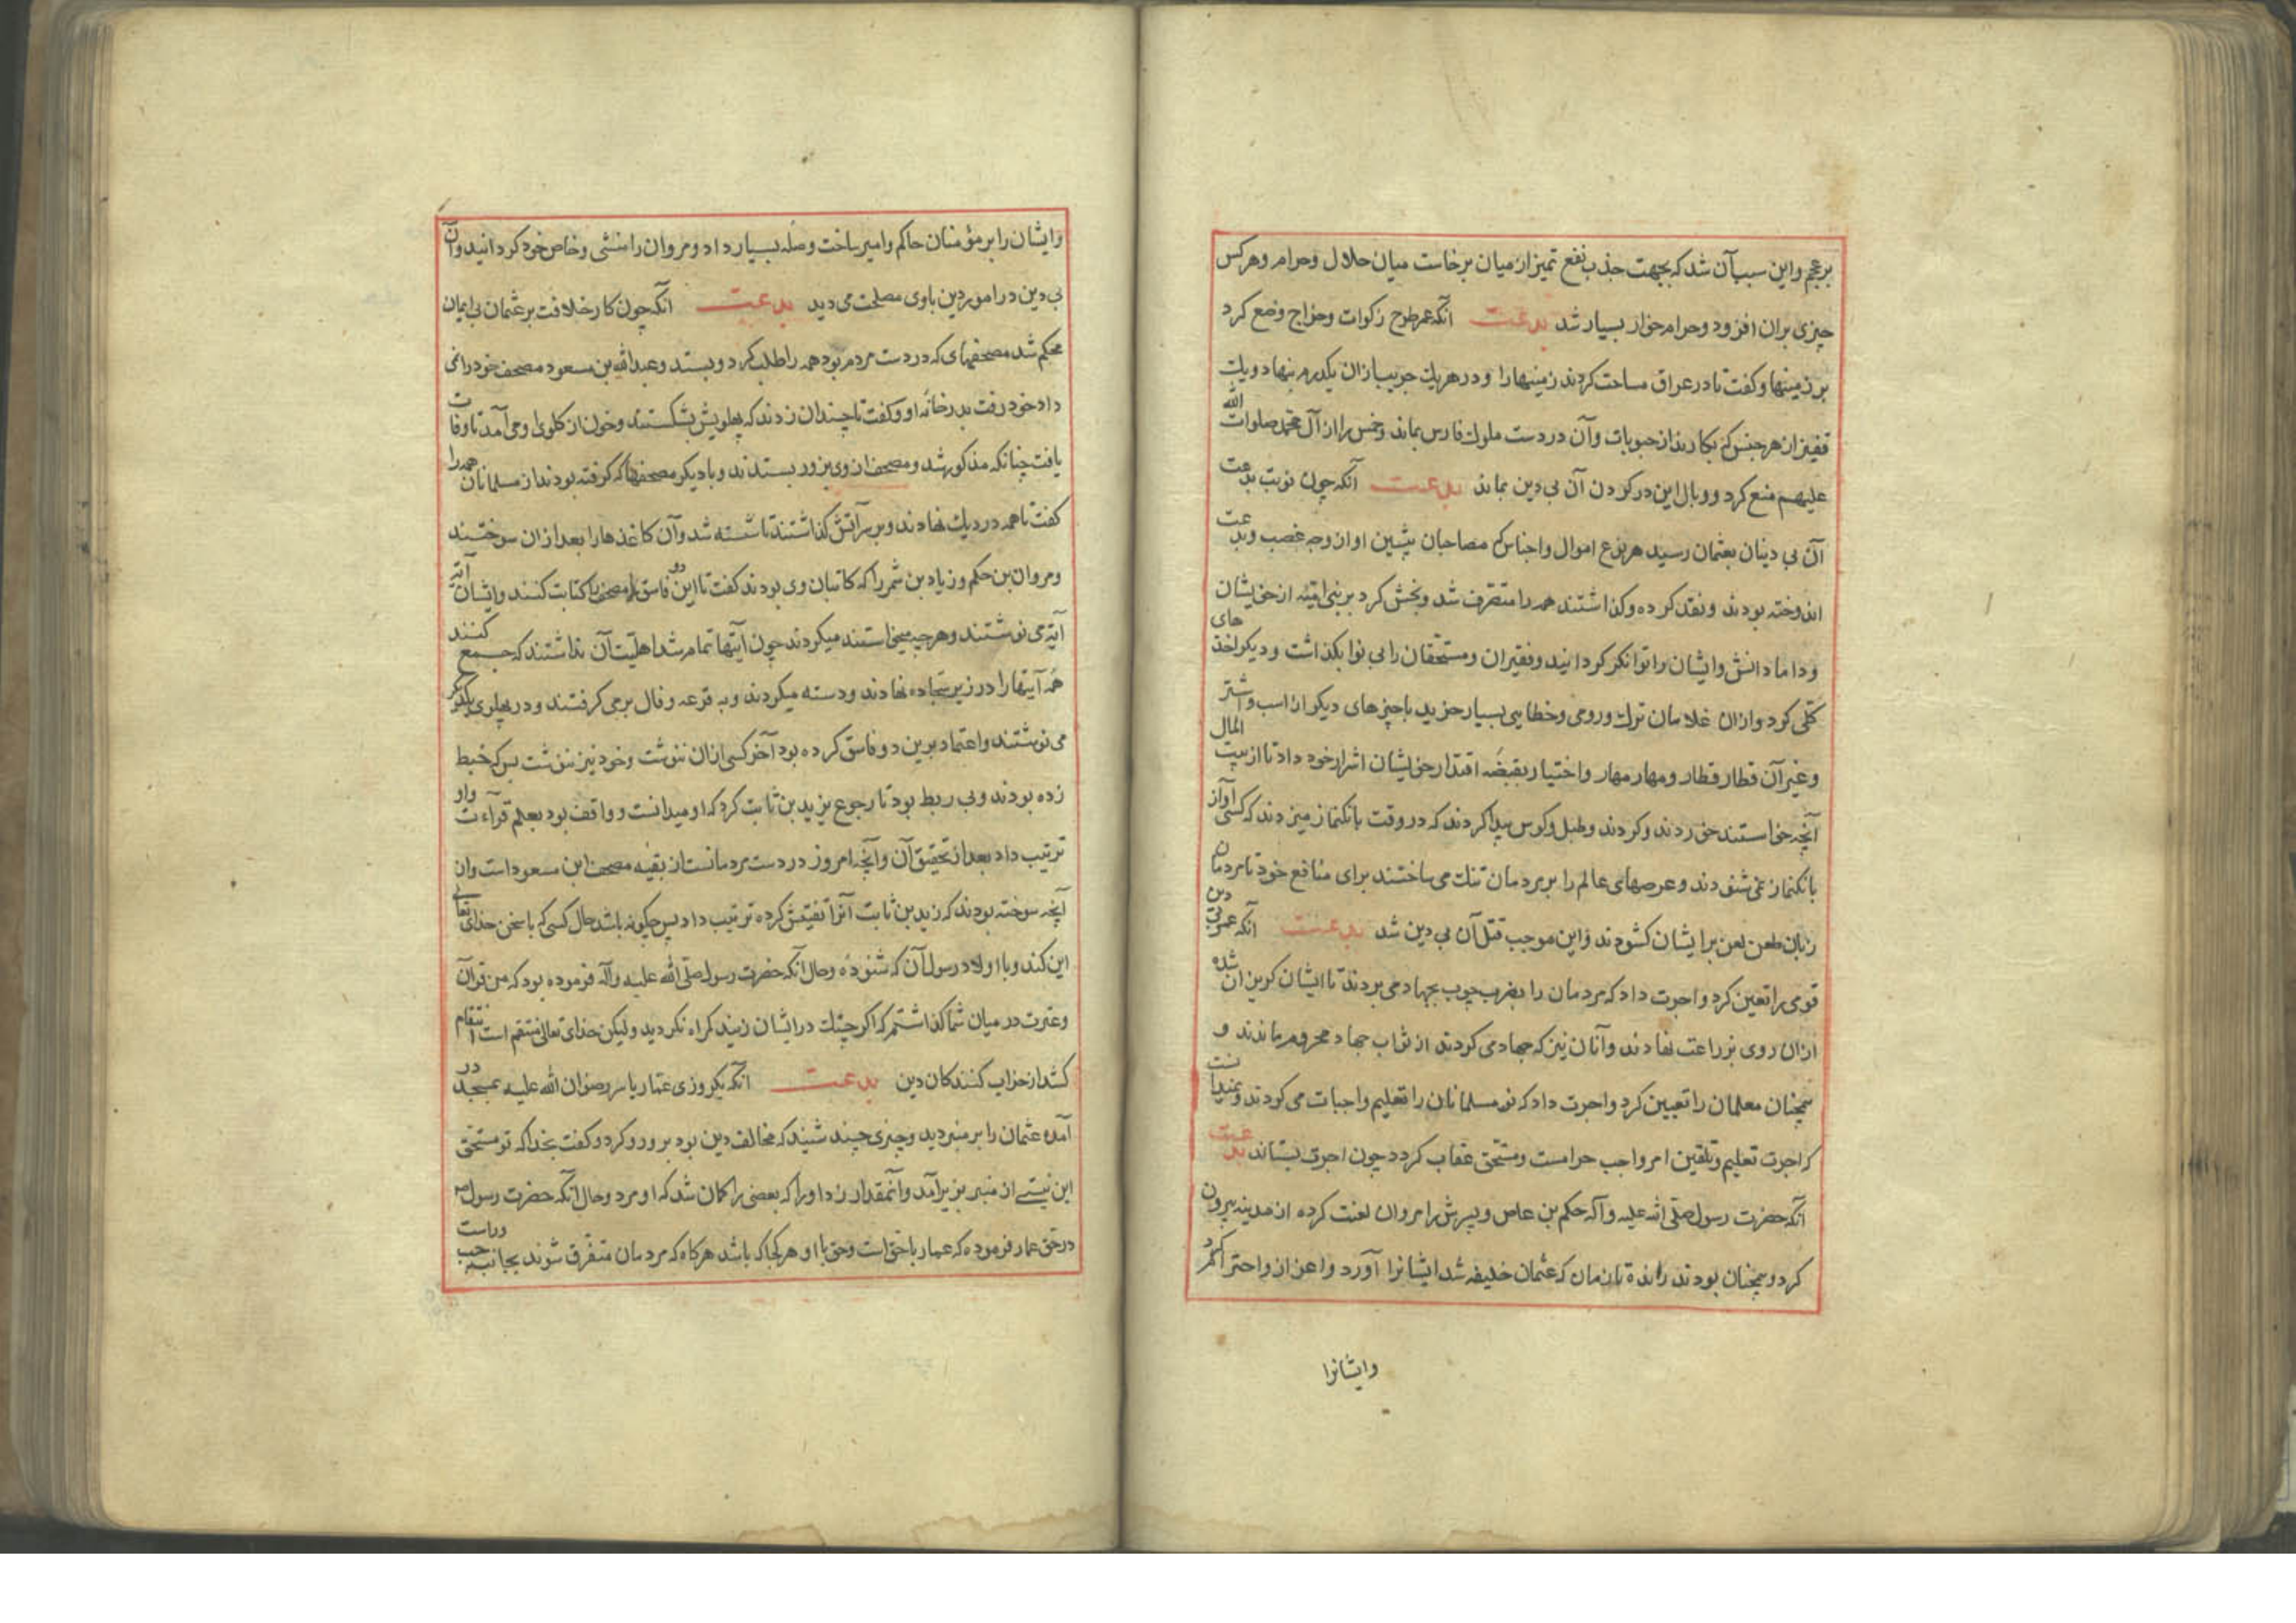 بر عجم و این سبب آن شد که بجهت جذب نفع تمیز از میان برخاست میان حلال و حرام و هر کس
چیزی بران افزود و حرام خوار بسیار شد بدعت آنکه عمر طرح زکوات و خراج وضع کرد
بر زمینها و گفت تا در عراق مساحت کردند زمینها را و در هر یک جریب ازان یکدرم بنهاد و یک
قفیز از هر جنس که بکارند از حبوبات و آن در دست ملوک فارس بماند و خمس را از آل محمد صلوات الله
علیهم منع کرد و وبال این در گردن آن بی دین بماند بدعت آنکه چون نوبت بدعت
آن بی دینان بعثمان رسید هر نوع اموال و اجناس که مصاحبان پیشین او از وجه غصب و بدعت
اندوخته بودند و نقد کرده و گذاشتند همه را متصرف شد و بخش کرد بر بنی امیه از خویشان
و دامادانش و ایشان را توانکر کردانید و فقیران و مستحقان را بی نوا بگذاشت و دیکر اخذهای
کلی کرد و ازان غلامان ترک و رومی و خطایی بسیار خرید با چیزهای دیکر از اسب و اشتر
و غیر آن قطار قطار و مهار مهار و اختیار بقبضه اقتدار خویشان اشرار خود داد تا از بیت المال
آنچه خواستند خوردند و کردند و طبل و کوس پیدا کردند که در وقت بانکنماز میزدند که کسی آواز
بانکنماز نمی شنودند و عرصهای عالم را بر مردمان تنک می ساختند برای منافع خود تا مردمان
زبان طعن لعن بر ایشان کشودند و این موجب قتل آن بی دین شد بدعت آنکه عمر بی دین
قومی را تعین کرد و اجرت داد که مردمان را بضرب چوب بجهاد می بردند تا ایشان کریزان شده
ازان روی بزراعت نهادند و آنان نیز که جهاد می کردند از ثواب جهاد محروم ماندند و
همچنان معلمان را تعیین کرد و اجرت داد که نو مسلمانان را تعلیم واجبات می کردند و نمیدانست
که اجرت تعلیم و تلقین امر واجب حرامست و مستحق عقاب کردد چون اجرت بستاند بدعت
آنکه حضرت رسول صلی الله علیه و آله حکم بن عاص و پسرش را مروان لعنت کرده از مدینه بیرون
کرد و همچنان بودند رانده تا زمان که عثمان خلیفه شد ایشانرا آورد و اعزاز و احترام کرد
وایشانرا
و ایشان را بر مؤمنان حاکم و امیر ساخت و صله بسیار داد و مروان را منشی و خاص خود کردانید و آن
بی دین در امور دین باوی مصلحت می دید بدعت آنکه چون کار خلافت بر عثمان بی ایمان
محکم شد مصحفهای که در دست مردم بود همه را طلب کرد و بستد و عبدالله بن مسعود مصحف خود را نمی
داد خود رفت بدر خانه او و کفت تا چندان زدند که پهلویش بشکستند و خون از کلوی او می آمد تا وفات
یافت چنانکه مذکور شد و مصحف از وی بزور بستدند و با دیکر مصحفها که کرفته بودند از مسلمانان همه را
کفت تا همه در دیک نهادند و بر سر آتش کذاشتند تا شسته شد و آن کاغذها را بعد ازان سوختند
و مروان بن حکم و زیاد بن شمر را که کاتبان وی بودند کفت تا این دو فاسق مصحف را کتابت کنند و ایشان آیه
آیه می نوشتند و هر چه میخواستند میکردند چون آیتها تمام شد اهلیت آن نداشتند که جمع کنند
همه آیتها را در زیر سجاده نهادند و دسته میکردند و به قرعه و فال بر می کرفتند و در پهلوی یکدیکر
می نوشتند و اعتماد برین دو فاسق کرده بود آخر کسی ازان ننوشت و خود نیز ننوشت بس که خبط
زده بودند و بی ربط بود تا رجوع بزید بن ثابت کرد که او میدانست و واقف بود بعلم قرآءت و او
ترتیب داد بعد از تحقیق آن و آنچه امروز در دست مردمانست از بقیه مصحف ابن مسعود است و ان
آنچه سوخته بودند که زید بن ثابت آنرا تفتیش کرده ترتیب داد پس چکونه باشد حال کسی که با سخن خدای تعالی
این کند و با اولاد رسول آن که شنوده و حال آنکه حضرت رسول صلی الله علیه وآله فرموده بود که من قرآن
و عترت در میان شما کذاشتم که اکر چنک در ایشان زنید کمراه نکردید و لیکن خدای تعالی منتقم است انتقام
کشد از خراب کنندکان دین بدعت آنکه یکروزی عمار یاسر رضوان الله علیه بمسجد در
آمده عثمان را بر منبر دید و چیزی چند شنید که مخالف دین بود برو رد کرد و کفت بخدا که تو مستحق
این نیستی از منبر بزیر آمد و آنمقدار زد او را که بعضی را کمان شد که او مرد و حال آنکه حضرت رسول ص
در حق عمار فرموده که عمار با حق است و حق با او هر کجا که باشد هرکاه که مردمان متفرق شوند بجانب چپ و راست